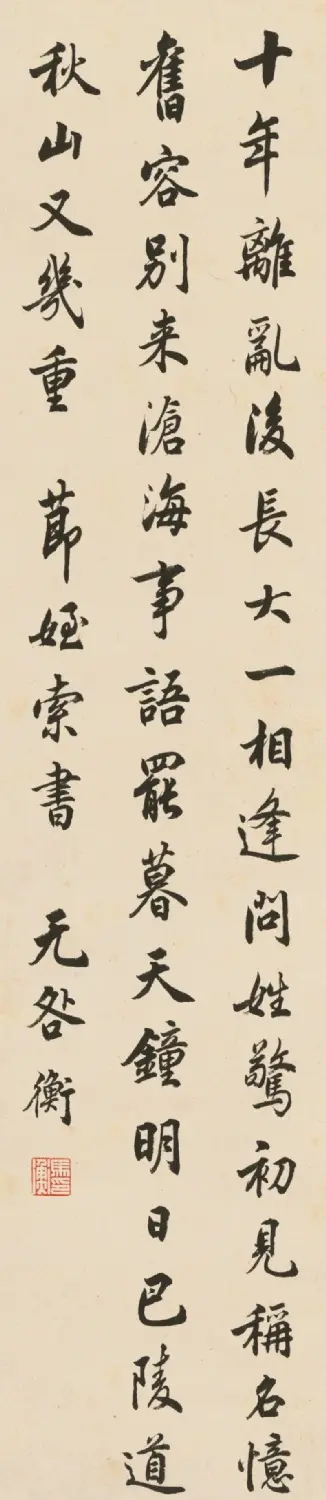 十年離亂後長大一相逢問姓驚初見稱名憶
舊容別来滄海事語罷暮天鐘明日巴陵道
秋山又幾重 莭姪索書 无咎衡